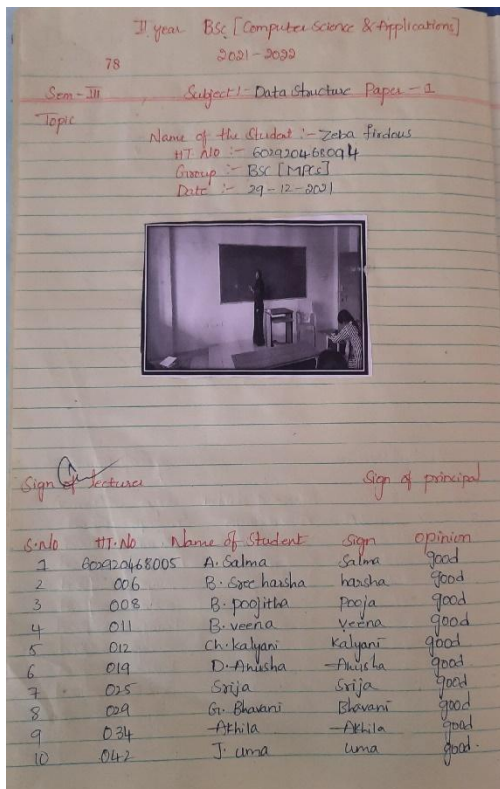 II year BSc [Computer Science & Applications]
78
2021-2022
Sem-III Subject:- Data Structure Paper-1
Topic
Name of the Student :- Zeba firdous
HT.NO :- 602920468094
Group :- BSC [MPCs]
Date :- 29-12-2021
Sign of lecturer Sign of principal
S.No HT.No Name of Student Sign opinion
1 602920468005 A.Salma Salma good
2 006 B. Sree harsha harsha good
3 008 B. poojitha Pooja good
4 011 B. veena Veena good
5 012 Ch. kalyani Kalyani good
6 019 D. Anusha Anusha good
7 025 Srija Srija good
8 029 G. Bhavani Bhavani good
9 034 Akhila Akhila good
10 042 J. uma uma good.